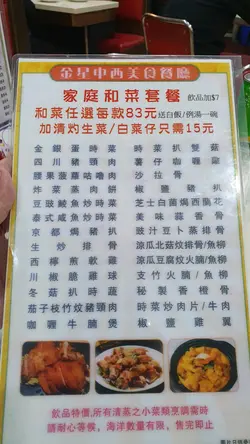 金星中西美食餐廳
家庭和菜套餐 飲品加$7
和菜任選每款83元 送白飯/例湯一碗
加清灼生菜/白菜仔只需15元
金銀蛋時菜
時菜扒雙菇
四川豬頸肉
薯仔咖喱雞
腰果菠蘿咕嚕肉
沙拉骨
炸菜蒸肉餅
椒鹽豬扒
豉味鯪魚炒時菜
芝士白菌焗西蘭花
泰式鹹魚炒時菜
美味蒜香骨
京都焗豬扒
豉汁豆卜蒸排骨
生炒排骨
涼瓜北菇炆排骨/魚柳
西檸煎軟雞
涼瓜豆腐炆火腩/魚柳
川椒脆雞球
支竹火腩/魚柳
冬菇扒時蔬
秘製香橙骨
茄子枝竹炆豬頸肉
時菜炒肉片/牛肉
咖喱牛腩煲
椒鹽雞翼
飲品特價,所有清蒸之小菜類烹調需時
請耐心等侯, 海洋數量有限, 售完即止